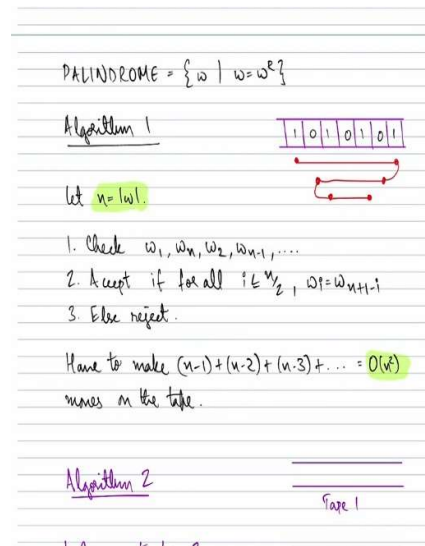 PALINDROME = {w | w=w^R}
Algorithm 1
1 0 1 0 1 0 1
Let n=|w|.
1. Check w₁, wₙ, w₂, wₙ₋₁, ....
2. Accept if for all i ≤ n/2, wᵢ=wₙ₊₁₋ᵢ
3. Else reject.
Have to make (n-1)+(n-2)+(n-3)+... = O(n²)
moves on the tape.
Algorithm 2
Tape 1